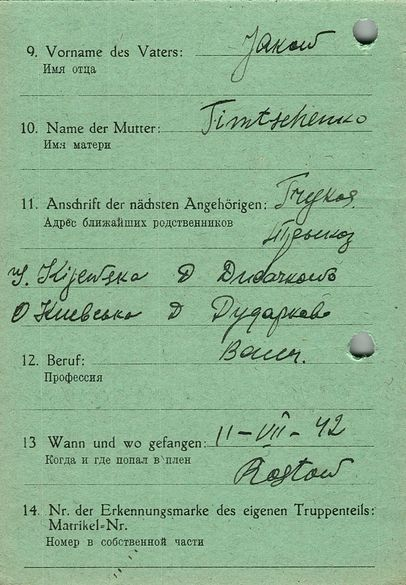 9. Vorname des Vaters: Jakow
Имя отца
10. Name der Mutter: Timtschenko
Имя матери
11. Anschrift der nächsten Angehörigen:
Адрес ближайших родственников
Kijewska D Dudarkowo
О Киевсько Д Дударково
12. Beruf: Bauer.
Профессия
13 Wann und wo gefangen: 11-VII-42
Когда и где попал в плен
Rostow
14. Nr. der Erkennungsmarke des eigenen Truppenteils:
Matrikel-Nr.
Номер в собственной части